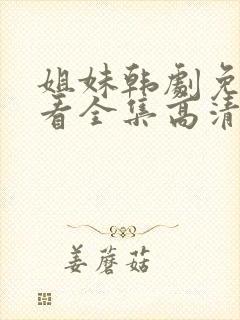 姐妹韩剧免
看全集高清
姜蘑菇